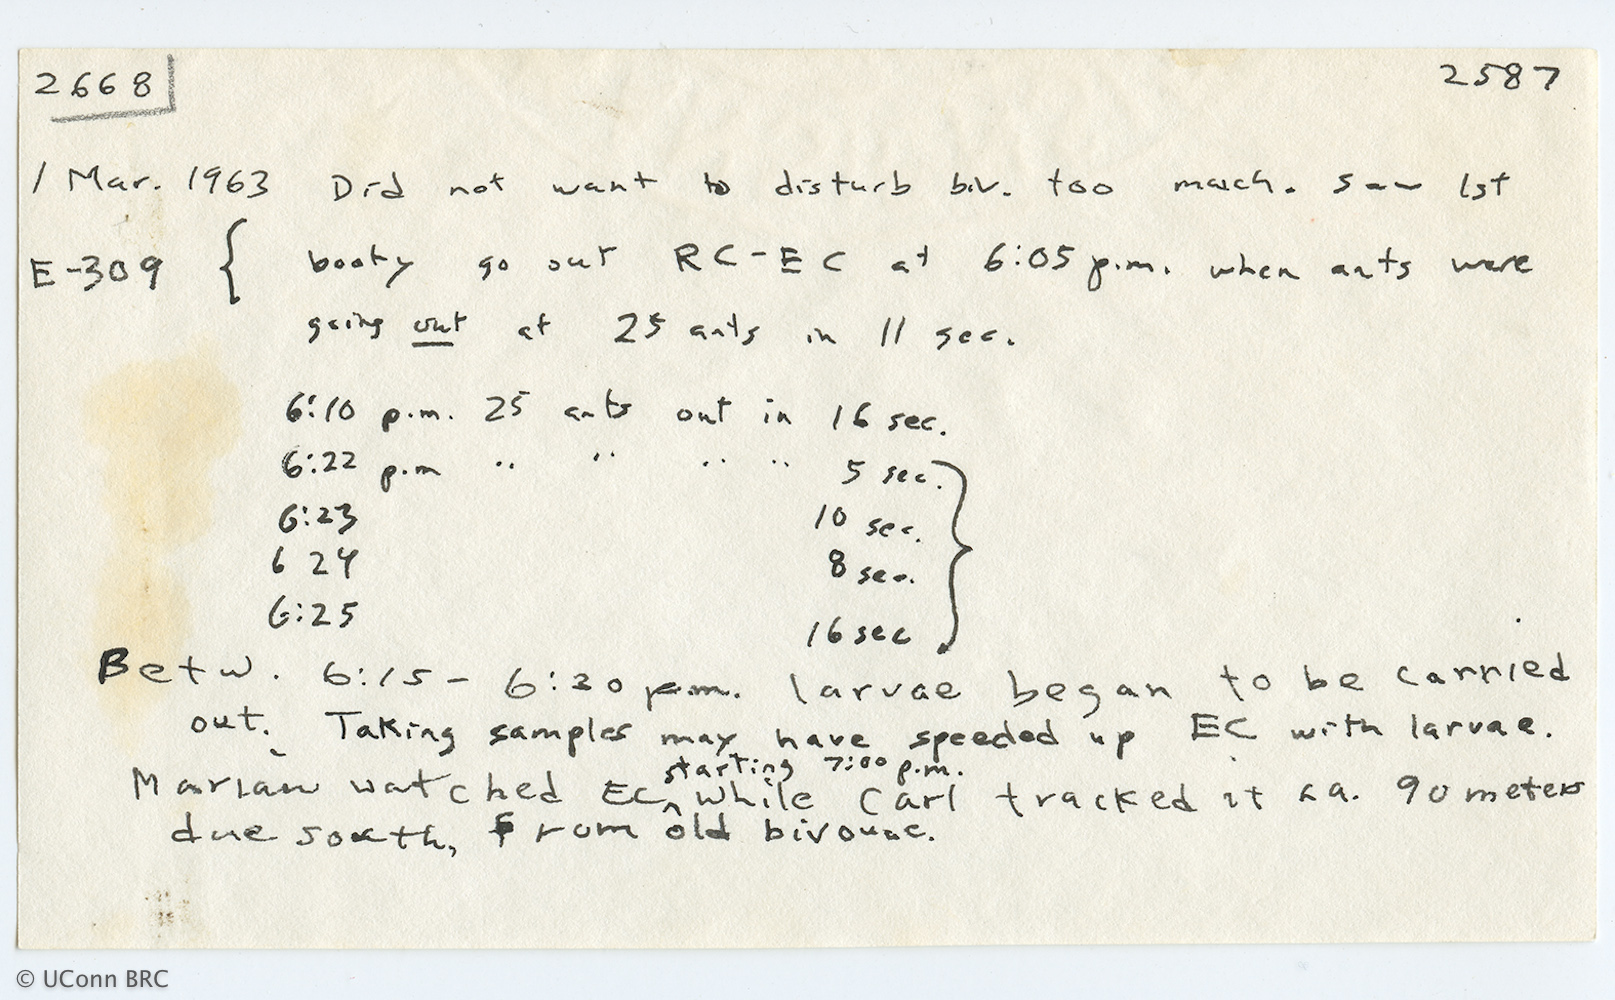 2668 2587
1 Mar. 1963 Did not want to disturb biv. too much. Saw 1st
E-309 { booty go out RC-EC at 6:05 p.m. when ants were
going out at 25 ants in 11 sec.
6:10 p.m. 25 ants out in 16 sec.
6:22 p.m " " " " 5 sec.
6:23 10 sec.
6 24 8 sec.
6:25 16 sec
Betw. 6:15 - 6:20 p.m. larvae began to be carried
out. Taking samples may have speeded up EC with larvae.
starting 7:00 p.m.
Marian watched EC ^ while Carl tracked it ca. 90 meters
due south, from old bivouac.
© UConn BRC